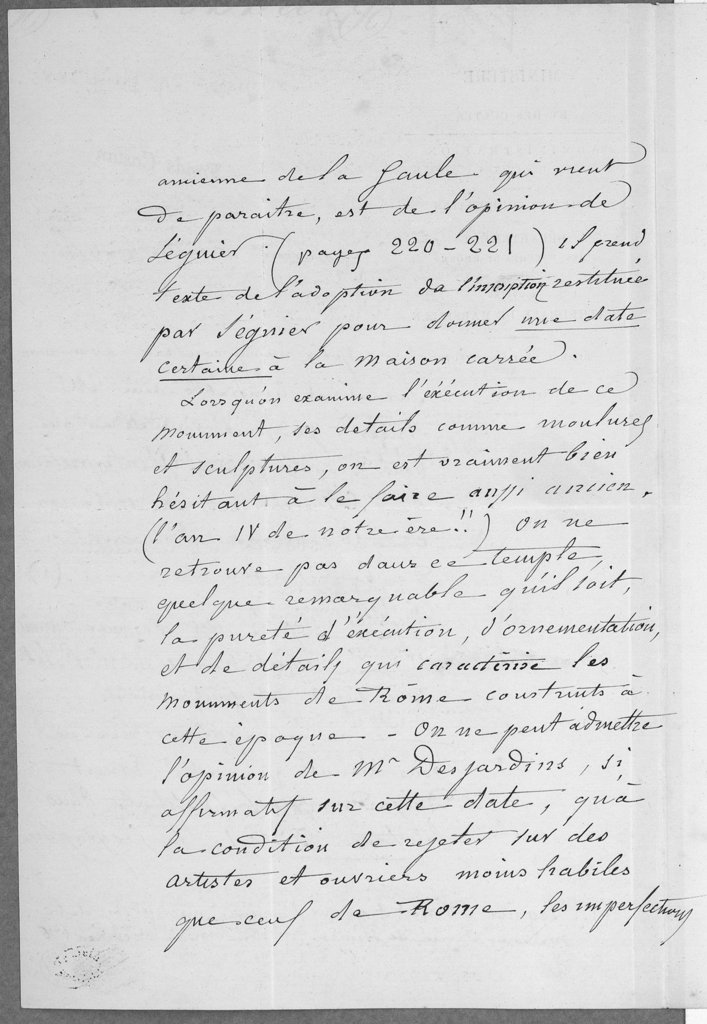 ancienne de la Gaule qui vient
de paraitre, est de l'opinion de
Séguier. (pages 220-221) il prend
texte de l'adoption de l'inscription restituée
par Séguier pour donner une date
certaine à la maison carrée.
Lorsqu'on examine l'exécution de ce
monument, ses details comme moulures
et sculptures, on est vraiment bien
hésitant à le faire aussi ancien.
(l'an IV de notre ère!!) On ne
retrouve pas dans ce temple,
quelque remarquable qu'il soit,
la pureté d'éxécution, d'ornementation,
et de détails qui caractérise les
monuments de Rôme construits à
cette époque - On ne peut admettre
l'opinion de Mr Desjardins, si
affirmatif sur cette date, qu'à
la condition de rejeter sur des
artistes et ouvriers moins habiles
que ceux de Rome, les imperfections